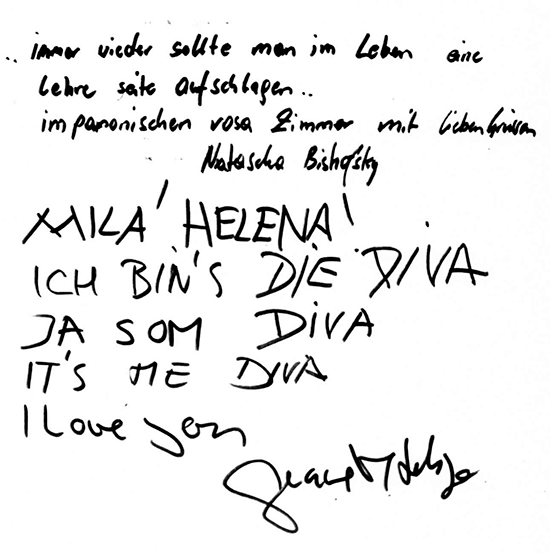 .. immer wieder sollte man im Leben eine
Lehre seite aufschlagen..
im panonischen rosa Zimmer mit lieben Grüssen
Natascha Bishofsky
MILÁ HELENA!
ICH BIN'S DIE DIVA
JA SOM DIVA
IT'S ME DIVA
I Love you